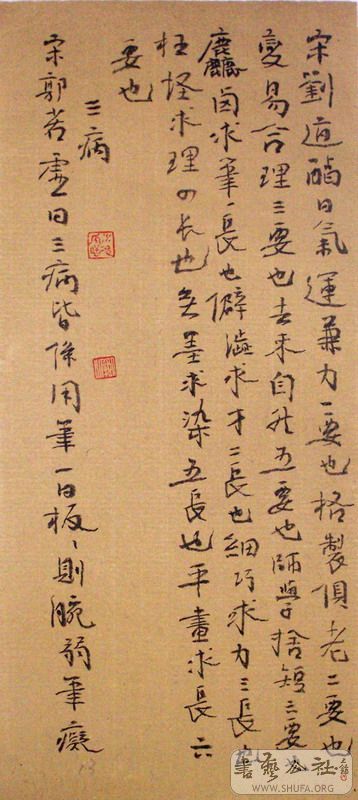 宋劉道醇曰氣運兼力一要也格製俱老二要也
變易合理三要也去来自然五要也師學捨短要也
麤鹵求筆一長也僻澁求才二長也細巧求力三長也
狂怪求理四长也無墨求染五長也平畫求長六
要也
三病
宋郭若虚曰三病皆係用筆一曰板、則腕弱筆癡
書藝公社
WWW.SHUFA.ORG